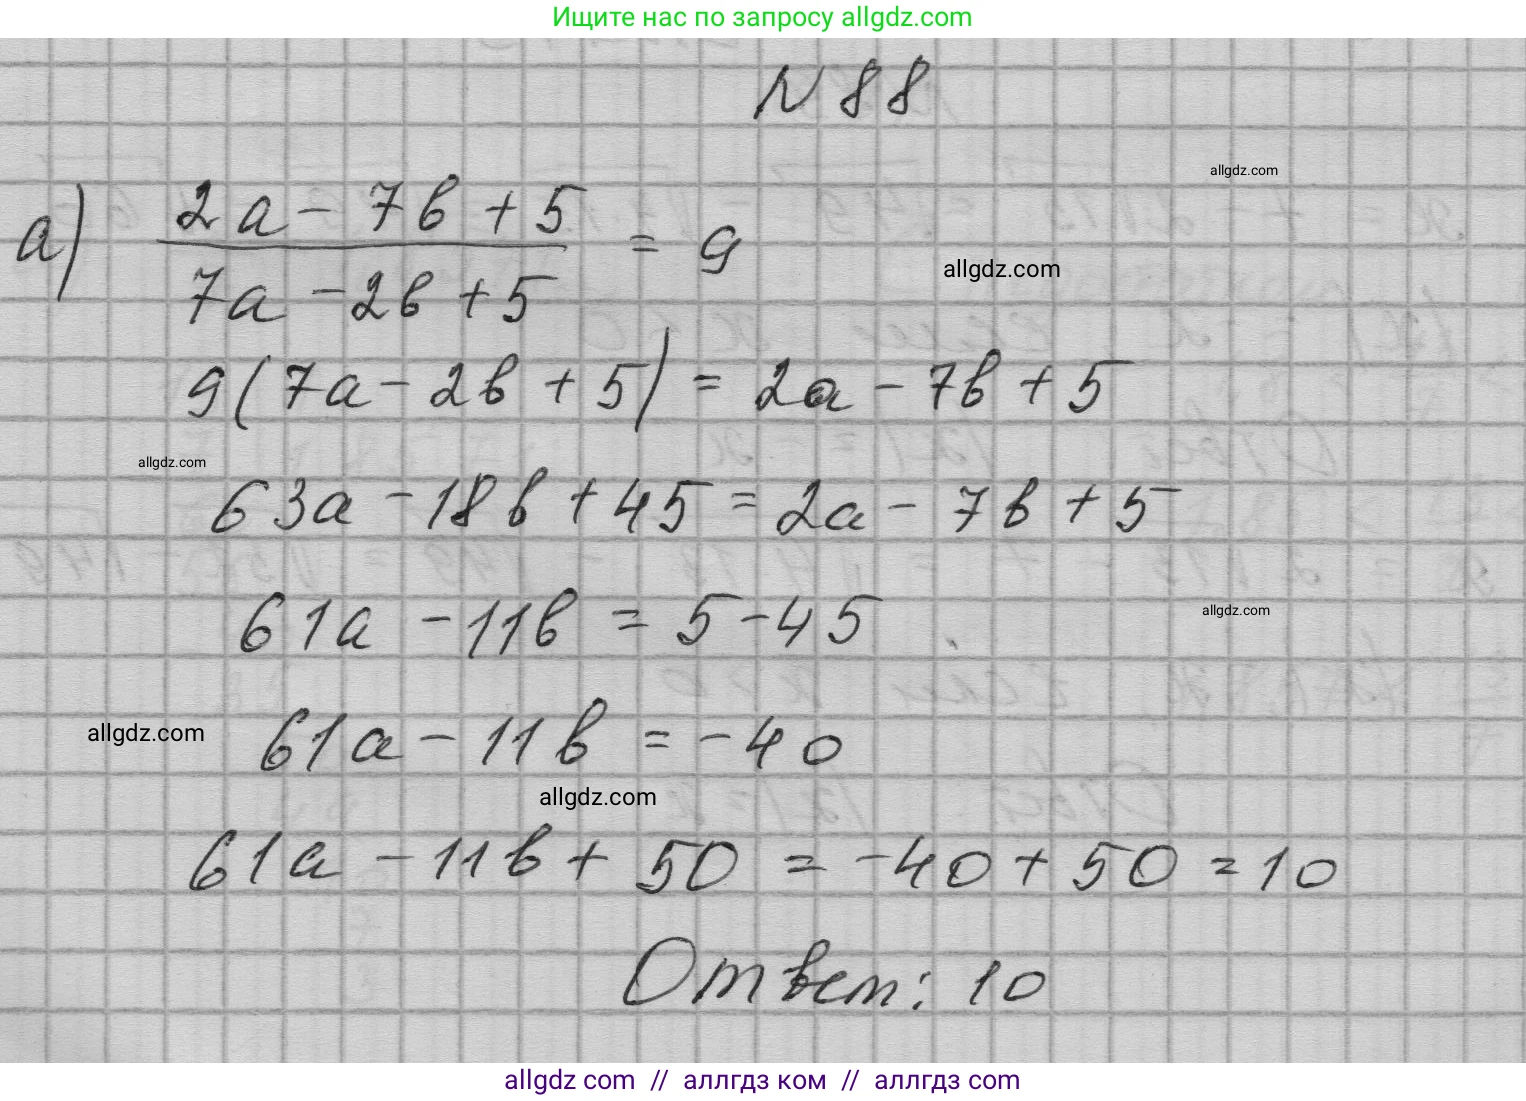 Ищите нас по запросу allgdz.com
N 88
allgdz.com
а) (2a - 7b + 5) / (7a - 2b + 5) = 9
allgdz.com
9(7a - 2b + 5) = 2a - 7b + 5
allgdz.com
63a - 18b + 45 = 2a - 7b + 5
61a - 11b = 5 - 45
allgdz.com
61a - 11b = -40
allgdz.com
allgdz.com
61a - 11b + 50 = -40 + 50 = 10
Ответ: 10
allgdz com // аллгдз ком // аллгдз com